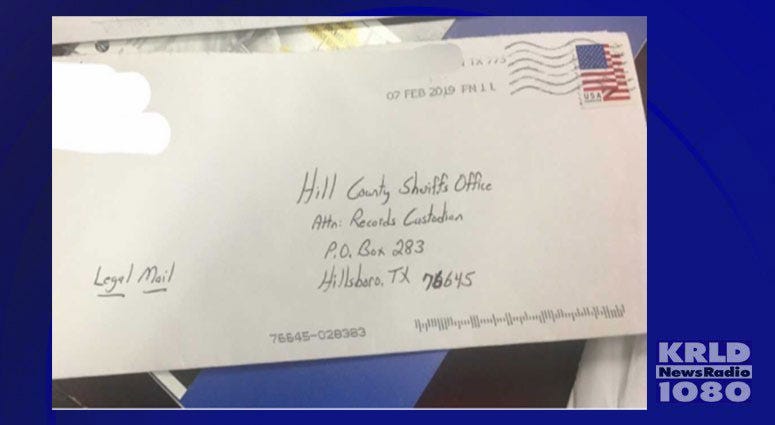 TX 773
07 FEB 2019 PM 1 L
USA
Hill County Sheriffs Office
Attn: Records Custodian
P.O. Box 283
Hillsboro, TX 76645
Legal Mail
76645-028383
KRLD
NewsRadio
1080